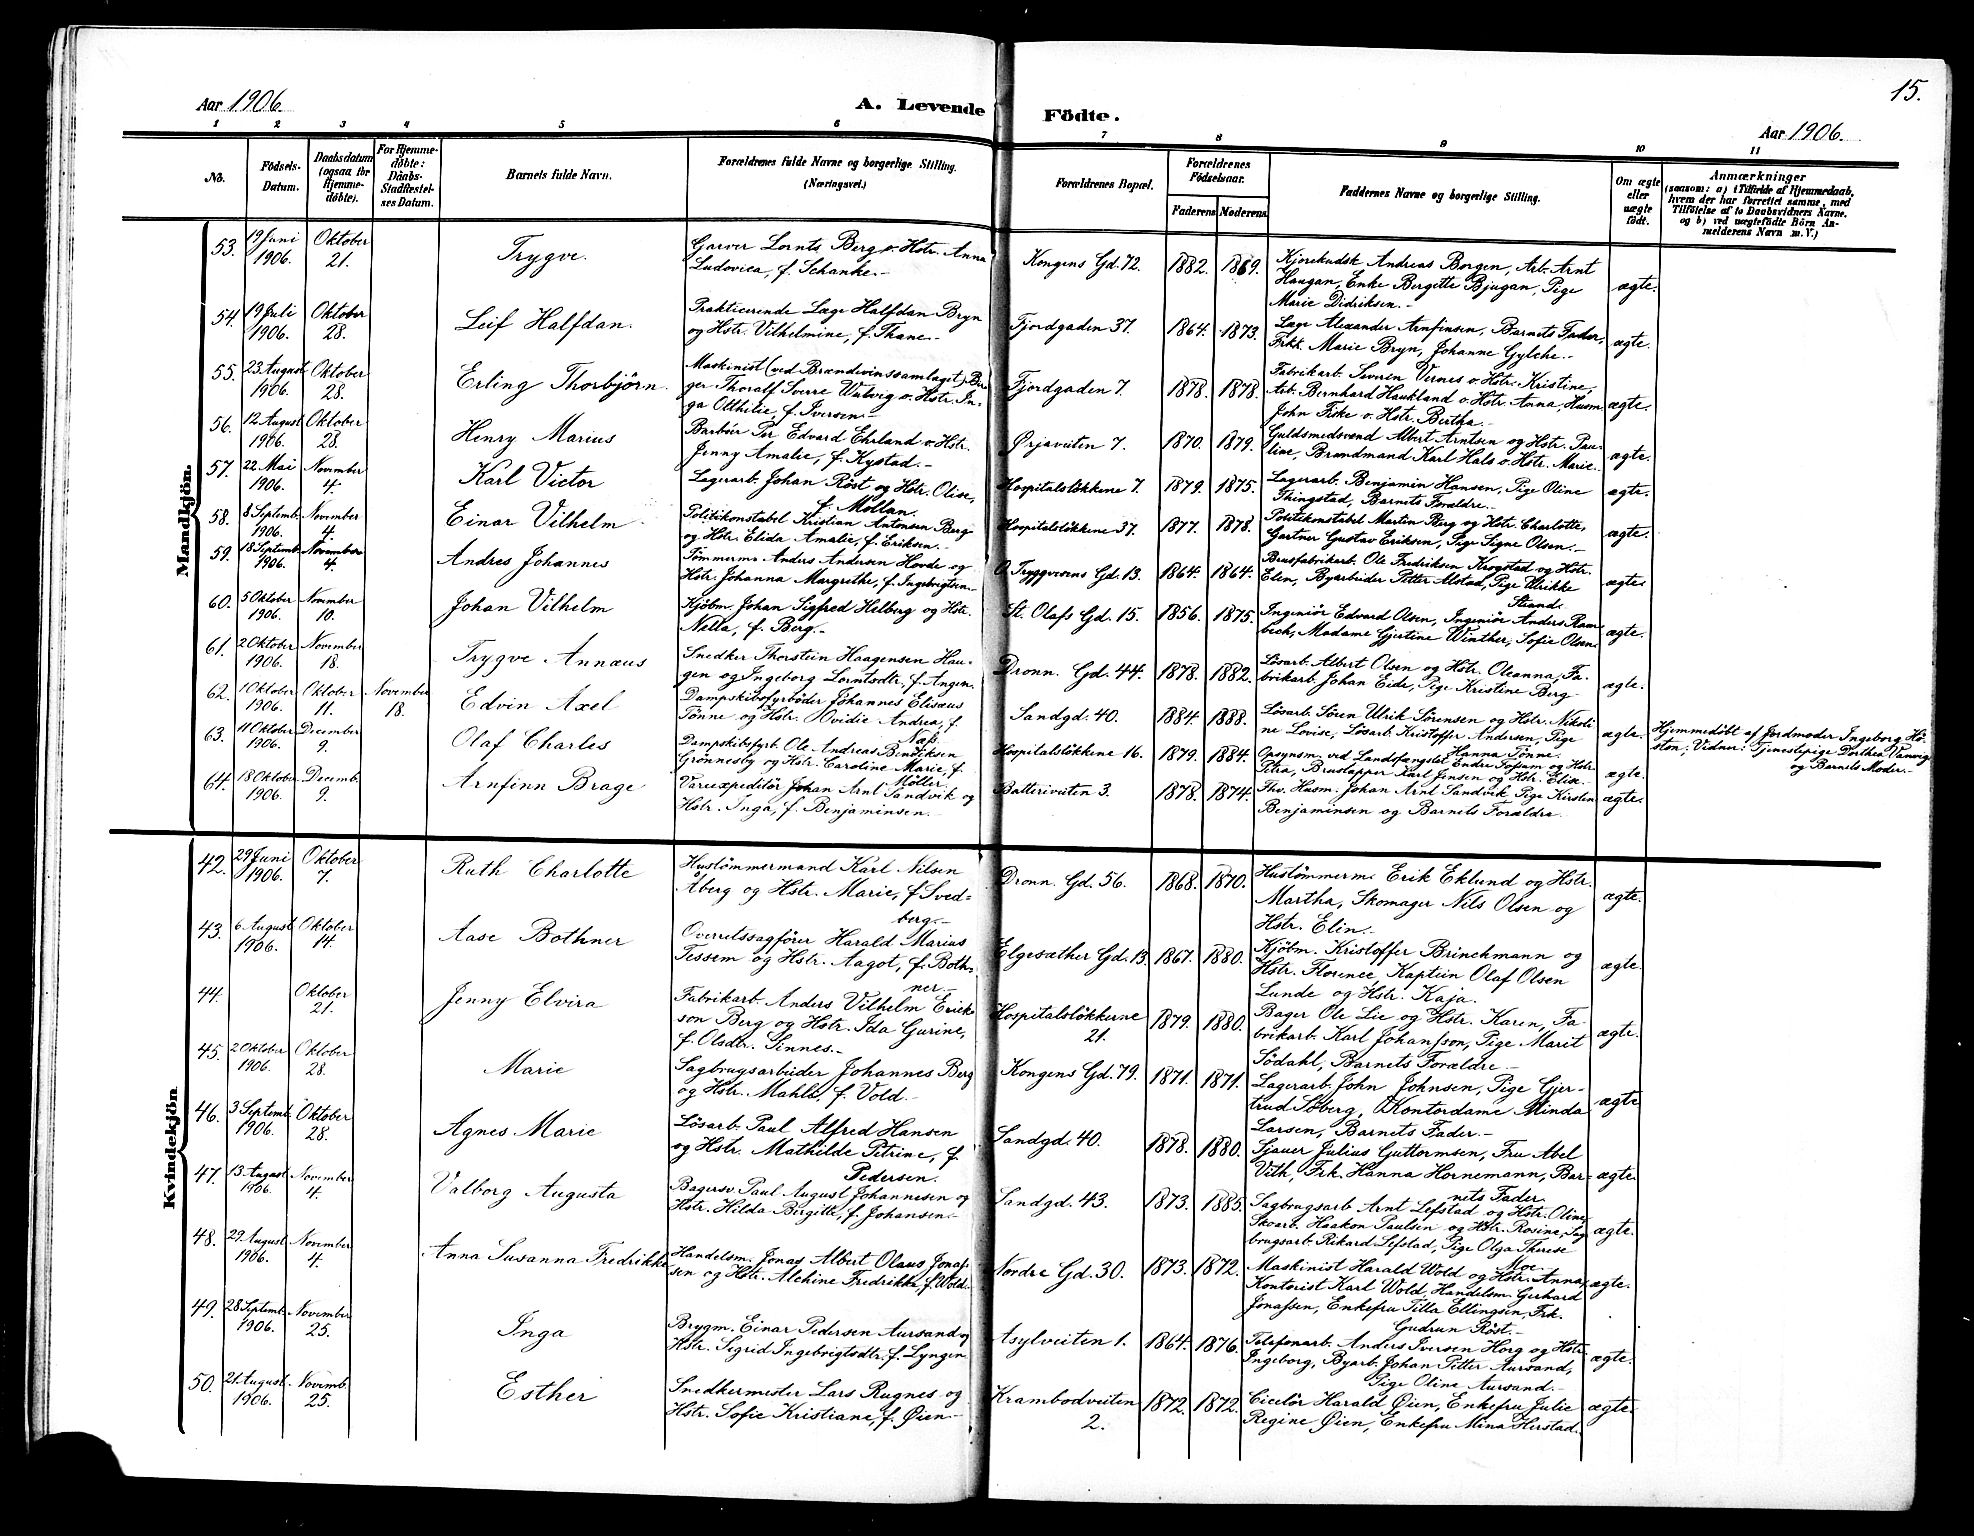 15.
Aar 1906.
A. Levende Födte.
Aar 1906.
1 2 3 4 5 6 7 8 9 10 11
No.
Födsels-
Datum.
Daabsdatum
(ogsaa for
Hjemme-
døbte).
For Hjemme-
døbte:
Daabs-
Stadfæstel-
ses Datum.
Barnets fulde Navn.
Forældrenes fulde Navne og borgerlige Stilling.
(Næringsvei.)
Forældrenes Bopæl.
Forældrenes
Födselsaar.
Faderens Moderens
Faddernes Navne og borgerlige Stilling.
Om ægte
eller
uægte
födt.
Anmærkninger
(saasom: a) i Tilfælde af Hjemmedaab,
hvem der har forrettet samme, med
Tilföielse af to Daabsvidners Navne.
og b) ved uægtefödte Börn An-
melderens Navn m. V.)
Mandkjön.
53. 19 Juni 1906. Oktober 21. Trygve.
Garver Lornts Berg o. Hstr. Anna
Ludovica, f. Schanke.-
Kongens Gd. 72. 1882. 1869.
Kjörekudsk Andreas Borgen, Arb. Arnt
Haugan, Enke Bergitte Bjugan, Pige
Marie Didriksen.-
ægte.
54. 19 Juli 1906. Oktober 28. Leif Halfdan.
Praktiserende Læge Halfdan Bryn
og Hstr. Vilhelmine, f. Thane.-
Fjordgaden 37. 1864. 1873.
Læge Alexander Arnfinsen, Barnets Fader,
Frkk. Marie Bryn, Johanne Gylche.-
ægte.
55. 23 August 1906. Oktober 28. Erling Thorbjörn.
Maskinist (ved Brændevinssamlaget) Bir-
ger Thoralf Sverre Wulvig o. Hstr. In-
ga Otthilie, f. Iversen.-
Fjordgaden 7. 1878. 1878.
Fabrikarb. Severin Vernes o. Hstr. Kristine,
Arb. Bernhard Haukland o. Hstr. Anna, Husm.
John Fiske o. Hstr. Bertha.-
ægte.
56. 12 August 1906. Oktober 28. Henry Marius
Barbér Per Edvard Ehrland o. Hstr.
Jenny Amalie, f. Kystad.-
Ørjaveiten 7. 1870. 1879.
Guldsmedsvend Albert Arntsen og Hstr. Pau-
line, Brandmand Karl Hals o. Hstr. Marie.
ægte.
57. 22 Mai 1906. November 4. Karl Victor
Lagerarb. Johan Röst og Hstr. Olise,
f. Mollan.
Hospitalslökkene 7. 1879. 1875.
Lagerarb. Benjamin Hansen, Pige Oline
Thingstad, Barnets Forældre.-
ægte.
58. 8 Septemb. 1906. November 4. Einar Vilhelm.
Politikonstabel Kristian Antonsen Berg
og Hstr. Elida Amalie, f. Eriksen.-
Hospitalslökkene 37. 1877. 1878.
Politikonstabel Martin Berg og Hstr. Charlotte,
Gartner Gustav Eriksen, Pige Signe Olsen.-
ægte.
59. 18 Septemb. 1906. November 4. Andres Johannes
Tömmerm. Anders Andersen Hovde og
Hstr. Johanna Margrethe, f. Ingebrigtsen.
O. Tryggvesens Gd. 13. 1864. 1864.
Brusfabrikarb. Ole Fredriksen Krogstad og Hstr.
Elen, Byarbeider Petter Alstad, Pige Ulrikke
Strand.
ægte.
60. 5 Oktober 1906. November 10. Johan Vilhelm
Kjöbm. Johan Sigfred Helberg og Hstr.
Nella, f. Berg.-
St. Olafs Gd. 15. 1856. 1875.
Ingeniør Edvard Olsen, Ingeniør Anders Ram-
bech, Madame Gjertine Winther, Sofie Olsen.
ægte.
61. 2 Oktober 1906. November 18. Trygve Annæus
Snedker Thorstein Haagensen Hau-
gen og Ingeborg Lorntsdtr. f. Angen.
Dronn. Gd. 44. 1878. 1882.
Lösarb. Albert Olsen og Hstr. Oleanna, Fa-
brikarb. Johan Eide, Pige Kristine Berg
ægte.
62. 1 Oktober 1906. Oktober 11. November 18. Edvin Axel
Dampskibsfyrböder Johannes Elisæus
Tönne og Hstr. Ovidie Andrea, f.
Næss.
Sandgd. 40. 1884. 1888.
Lösarb. Sören Ulrik Sörensen og Hstr. Nikoli-
ne Lovise, Lösarb. Kristoffer Andersen, Pige
Hanna Tönne.
ægte.
Hjemmedöbt af Jordmoder Ingeborg Hö-
ston; Vidner: Tjenestepige Dorthea Vanvig
og Barnets Moder.-
63. 11 Oktober 1906. December 9. Olaf Charles
Dampskibsfyrb. Ole Andreas Bendiksen
Grönnesby og Hstr. Caroline Marie, f.
Möller.
Hospitalslökkene 16. 1879. 1884.
Opsynsm. ved Landsfængslet Endre Fossam og Hstr.
Petra, Brustapper Karl Jensen og Hstr. Elise.
ægte.
64. 18 Oktober 1906. Decemb. 9. Arnfinn Brage.
Vareexpeditör Johan Arnt Sandvik og
Hstr. Inga, f. Benjaminsen.-
Batteriveiten 3. 1878. 1874.
Fhv. Husm. Johan Arnt Sandvik, Pige Kirsten
Benjaminsen og Barnets Forældre.
ægte.
Kvindekjön
42. 29 Juni 1906. Oktober 7. Ruth Charlotte
Hustömmermand Karl Nilsen
Åberg og Hstr. Marie, f. Sved-
berg.-
Dronn. Gd. 56. 1868. 1870.
Hustömmerm. Erik Eklund og Hstr.
Martha, Skomager Nils Olsen og
Hstr. Elin.-
ægte.
43. 6 August 1906. Oktober 14. Aase Bothner
Overretssagförer Harald Marius
Tessem og Hstr. Aagot, f. Both-
ner.-
Elgesæther Gd. 13. 1867. 1880.
Kjöbm. Kristoffer Brinchmann og
Hstr. Florence, Kaptein Olaf Olsen
Lunde og Hstr. Kaja.
ægte.
44. Oktober 21. Jenny Elvira
Fabrikarb. Anders Vilhelm Erick-
son Berg og Hstr. Ida Gurine,
f. Olsdtr. Sinnes.-
Hospitalslökkerne 21. 1879. 1880.
Bager Ole Lie og Hstr. Karen, Fa-
brikarb. Karl Johansson, Pige Marit
Södahl, Barnets Forældre.-
ægte.
45. 2 Oktober 1906. Oktober 28. Marie
Sagbrugsarbeider Johannes Berg
og Hstr. Mahle, f. Vold.-
Kongens Gd. 79. 1871. 1871.
Lagerarb. John Johnsen, Pige Gjer-
trud Söberg, Kontordame Minda
Larsen, Barnets Fader.-
ægte
46. 3 Septemb. 1906. Oktober 28. Agnes Marie
Lösarb. Paul Alfred Hansen
og Hstr. Mathilde Petrine, f.
Pedersen.
Sandgd. 40. 1878. 1880.
Sjauer Julius Guttormsen, Fru Abel
Vith, Frk. Hanna Hornemann, Bar-
nets Fader
ægte.
47. 13 August 1906. November 4. Valborg Augusta
Bagersv. Paul August Johannesen og
Hstr. Hilda Birgitte, f. Johansen.-
Sandgd. 43. 1873. 1885.
Sagbrugsarb. Arnt Lefstad og Hstr. Oline,
Skoarb. Haakon Paulsen og Hstr. Rosine, Sag-
brugsarb. Rikard Lefstad, Pige Olga Therese
Moe.
ægte.
48. 29 August 1906. November 4. Anna Susanna Fredrikke
Handelsm. Jonas Albert Olaus Jonas-
sen og Hstr. Alchine Fredrikke, f. Wold.
Nordre Gd. 30. 1873. 1872.
Maskinist Harald Wold og Hstr. Anna,
Kontorist Karl Wold, Handelsm. Gerhard
Jonassen, Enkefru Tilla Ellingsen, Frk.
Gudrun Röst.-
ægte.
49. 28 Septemb. 1906. November 25. Inga
Brygm. Einar Pedersen Aursand og
Hstr. Sigrid Ingebrigtsdtr. f. Lyngen
Asylveiten 1. 1864. 1876.
Telefonarb. Anders Iversen Horg og Hstr.
Ingeborg, Byarb. Johan Petter Aursand,
Pige Oline Aursand.-
ægte.
50. 21 August 1906. Novemb. 25. Esther
Snedkermester Lars Rugnes og
Hstr. Sofie Kristiane, f. Øien.-
Krambodveiten 2. 1872. 1872.
Ciselör Harald Øien, Enkefru Julie
Regine Øien, Enkefru Mina Hirstad.
ægte.